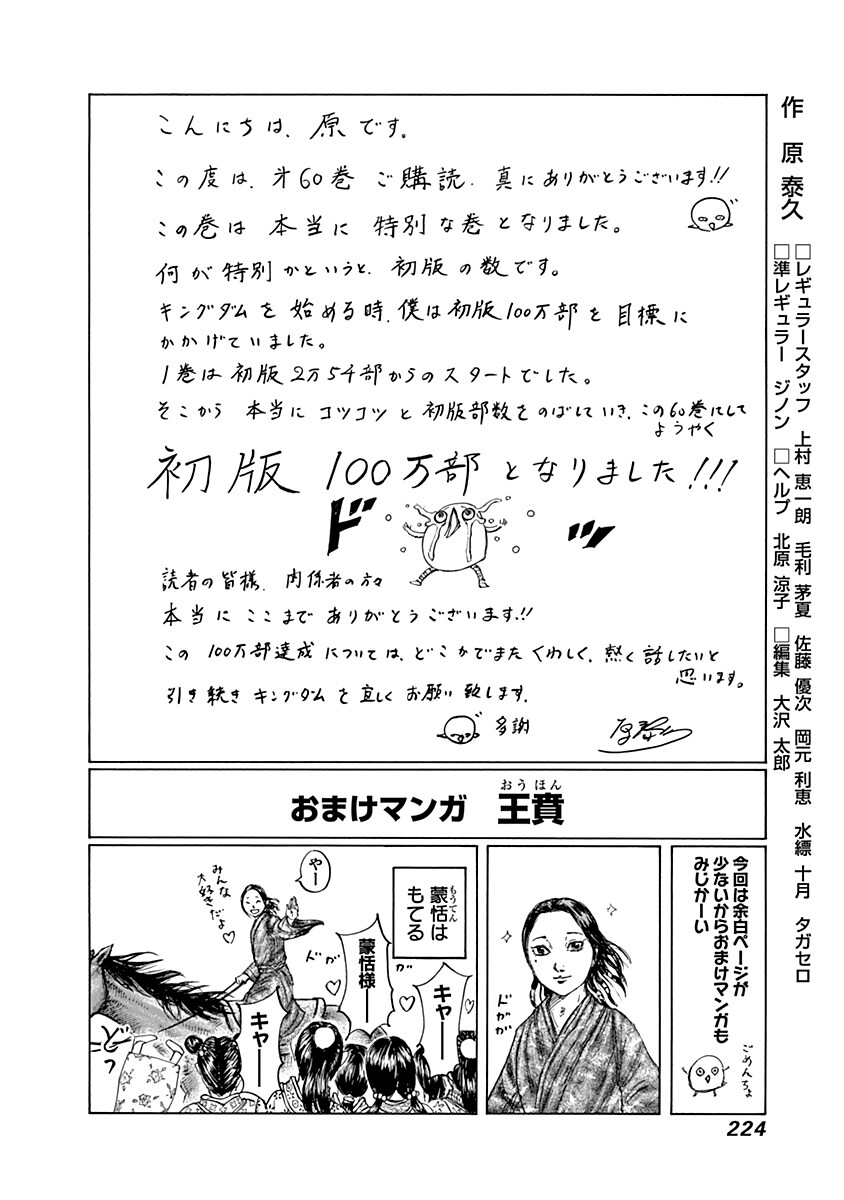 作 原 泰久
□レギュラースタッフ 上村 恵一朗 毛利 茅夏 佐藤 優次 岡元 利恵 水縹 十月 タガセロ
□準レギュラー ジノン □ヘルプ 北原 涼子 □編集 大沢 太郎
こんにちは、原です。
この度は、才60巻 ご購読、真にありがとうございます!!
この巻は 本当に 特別な巻となりました。
何が特別かというと、初版の数です。
キングダムを始める時、僕は初版100万部を目標に
かかげていました。
1巻は初版2万5千部からのスタートでした。
そこから 本当に コツコツと初版部数をのばしていき、この60巻にして
ようやく
初版 100万部となりました!!!
ドッ
読者の皆様、関係者の方々
本当に ここまで ありがとうございます!!
この 100万部達成については、どこかでまた くわしく、熱く話したいと
思います。
引き続き キングダムを宜しくお願い致します。
多謝
おまけマンガ 王賁
おうほん
今回は余白ページが
少ないからおまけマンガも
みじかーい
ごめんちょ
ドガガ
蒙恬は
もうてん
もてる
やー
みんな
大好きだよ♡
ドガ
ガ
キャー
蒙恬様ー
キャー
どっ
224